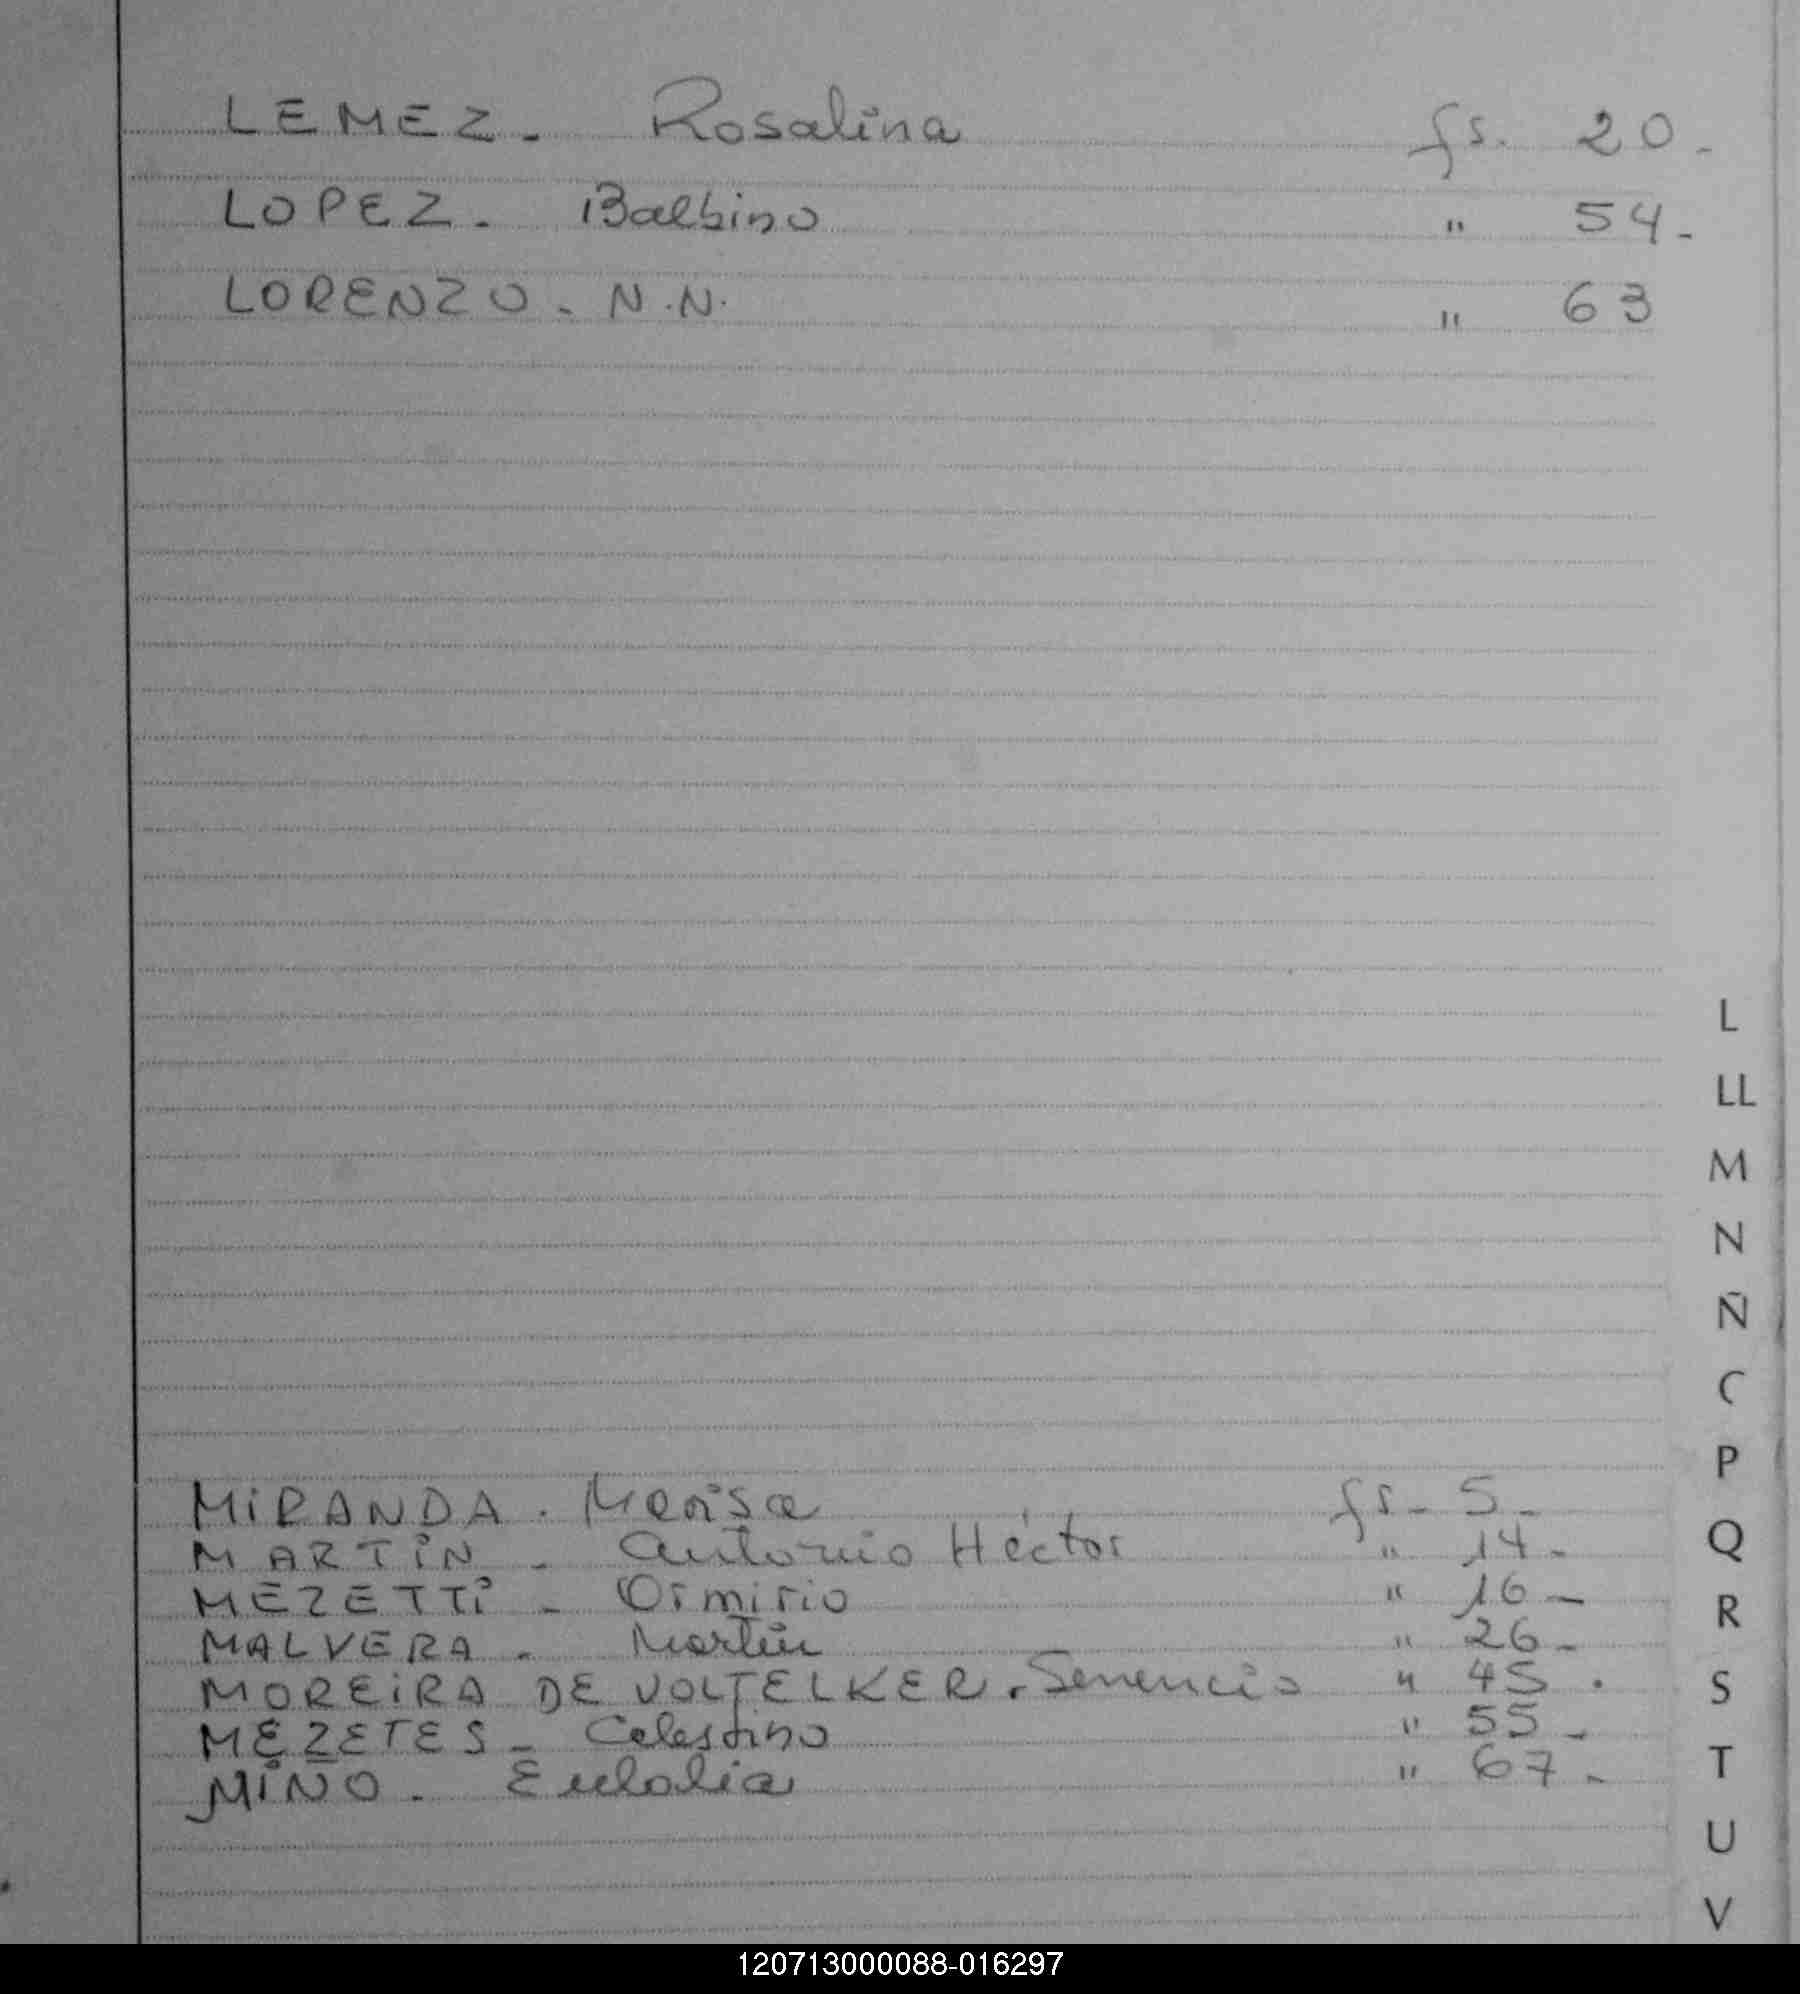 LEMEZ. Rosalina fs. 20.
LOPEZ. Balbino " 54.
LORENZO. N.N. " 63
L
LL
M
N
Ñ
MIRANDA. Marisa fs. 5.
MARTIN. Antonio Héctor " 14.
MEZETTI. Ormirio " 16.
MALVERA. Martin " 26.
MOREIRA DE VOLTELKER. " 45.
MEZETES. Celestino " 55.
MIÑO. Eulalia " 67.
P
Q
R
S
T
U
V
120713000088-016297